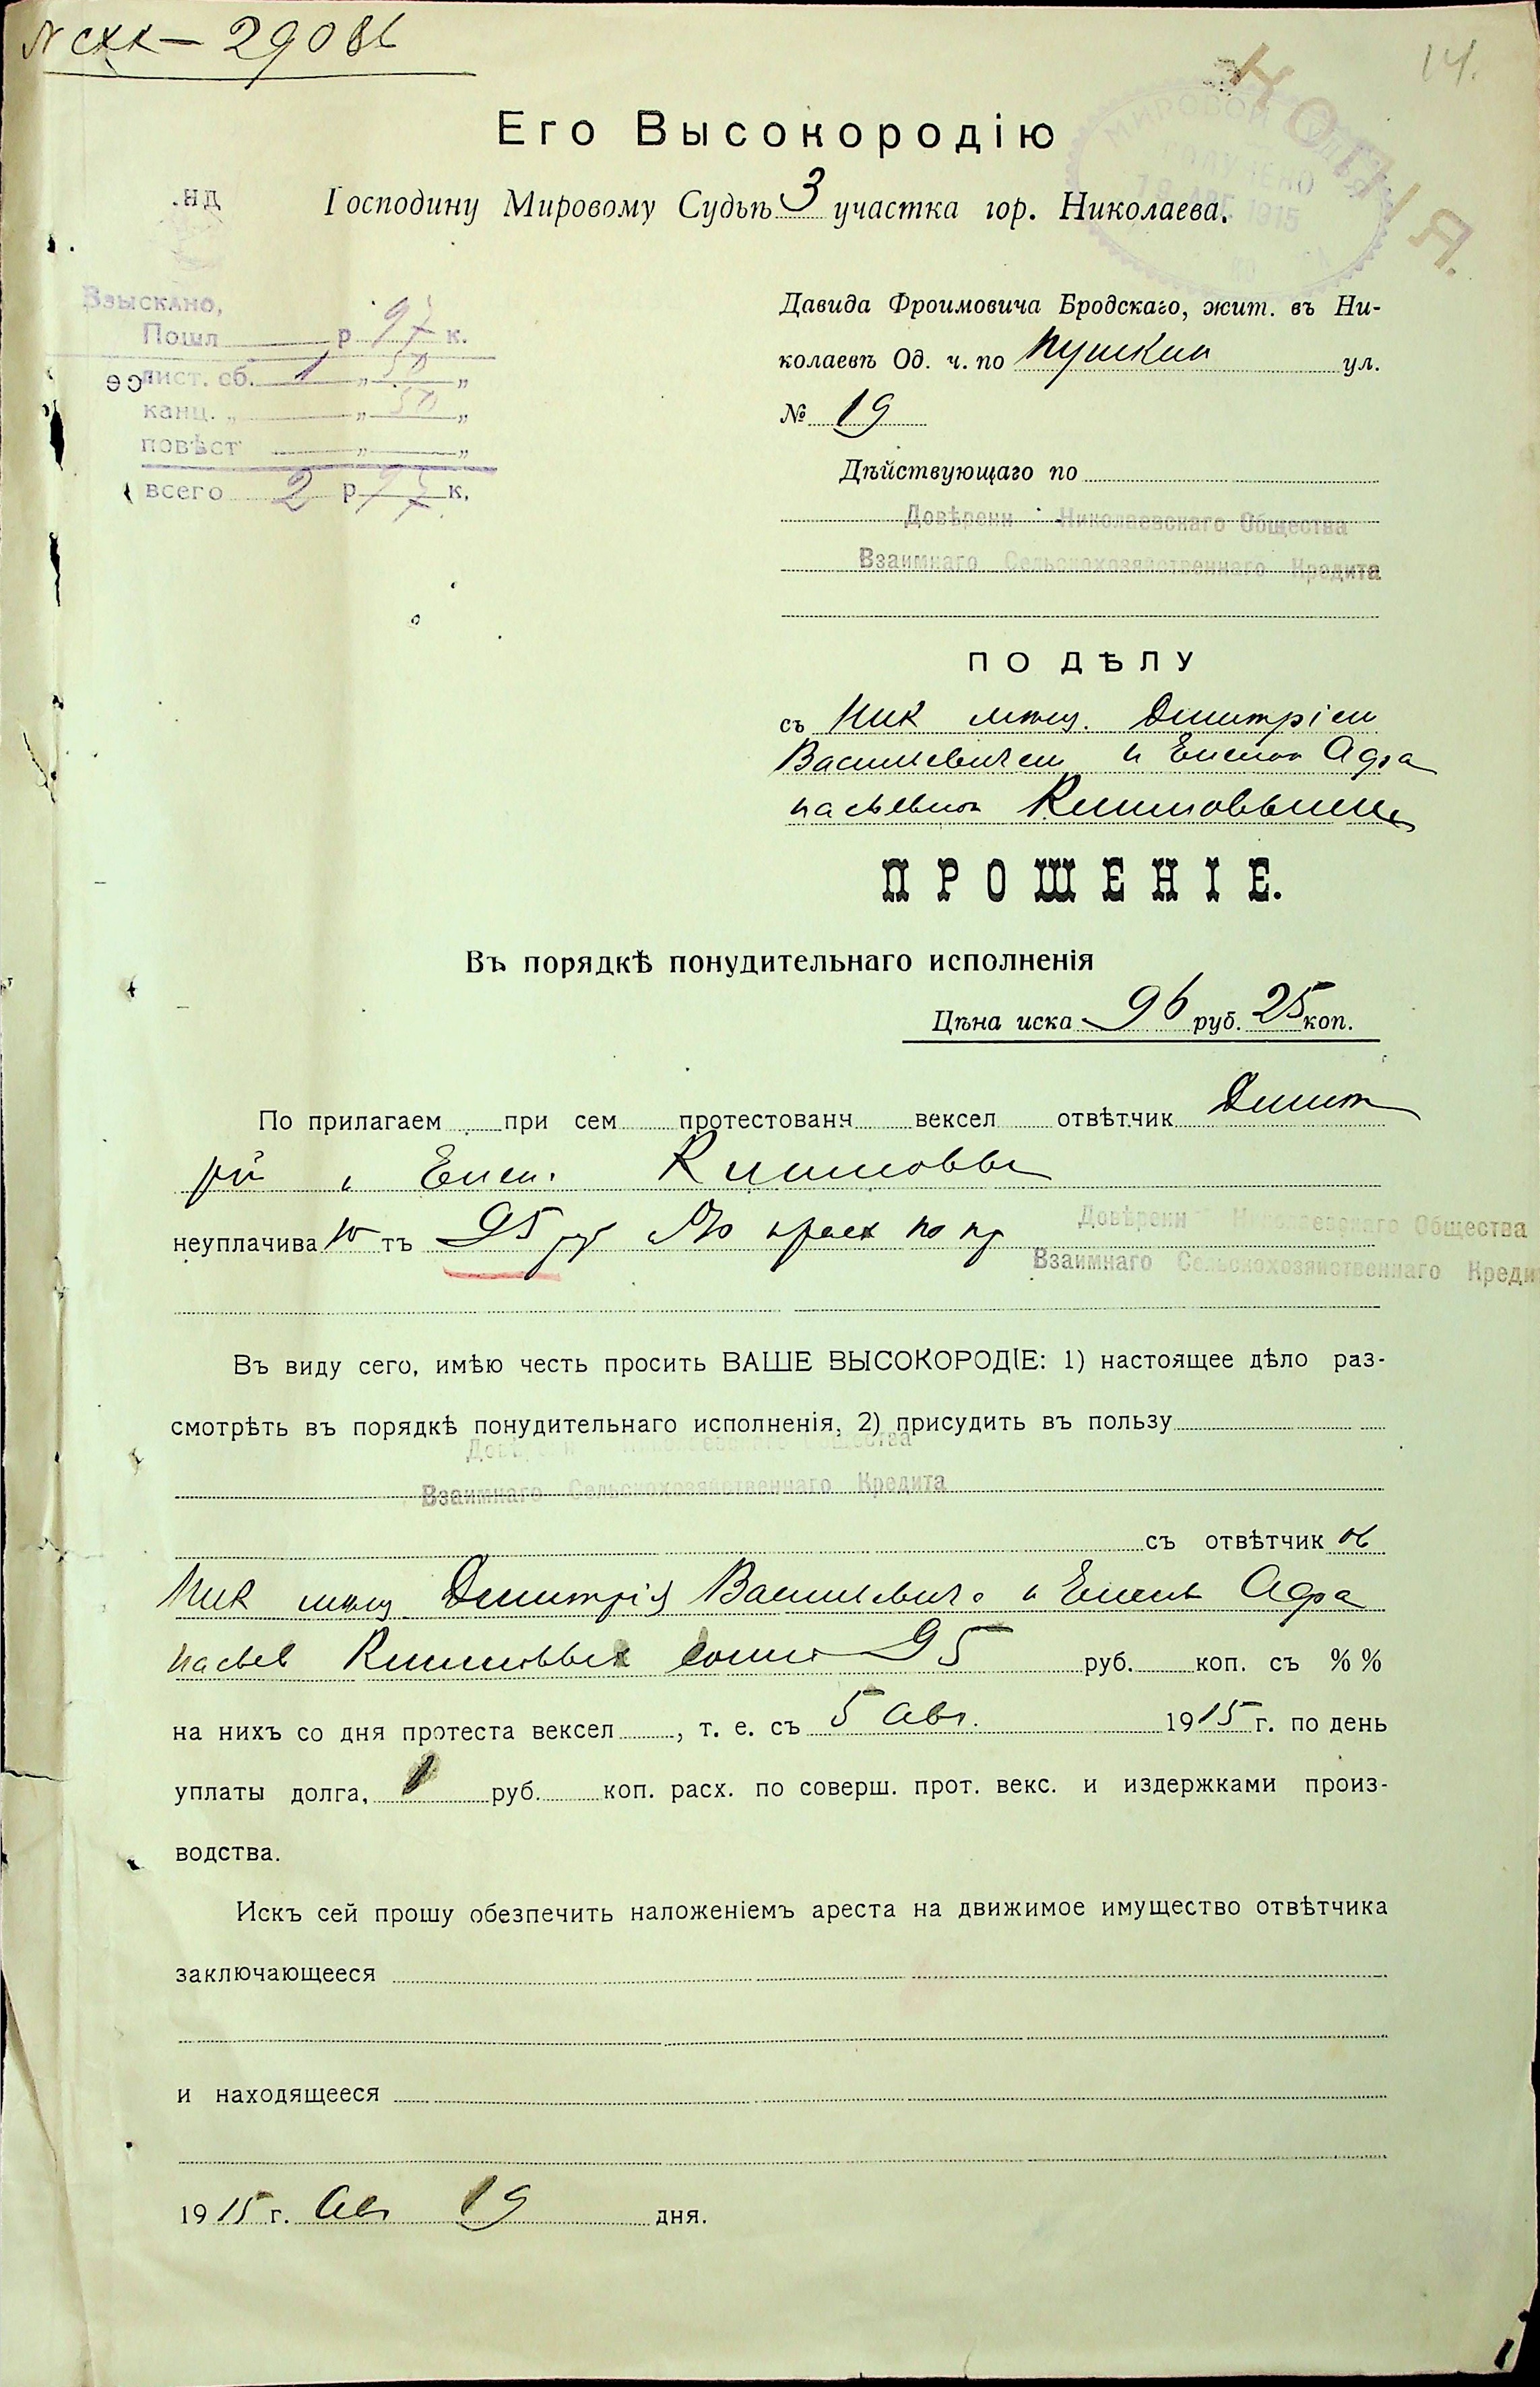 14.
КОПІЯ.
Его Высокородію
Господину Мировому Судьѣ 3 участка гор. Николаева.
МИРОВОЙ
ПОЛУЧЕНО
19 АВГ 1915
Взыскано,
Пошл р 97 к.
лист. сб. 1 „ 50 „
канц. „ „ 50 „
повѣст „ „
всего 2 р 97 к.
Давида Фроимовича Бродскаго, жит. въ Ни-
колаевѣ Од. ч. по Пушкин ул.
№ 19
Дѣйствующаго по
Довѣренн Николаевскаго Общества
Взаимнаго Сельскохозяйственнаго Кредита
ПО ДѢЛУ
съ Ник мѣщ. Дмитріем
Васильевичем и Еленой Афа
насьевной
ПРОШЕНІЕ.
Въ порядкѣ понудительнаго исполненія
Цѣна иска 96 руб. 25 коп.
По прилагаем при сем протестованн вексел отвѣтчик Дмит
рій и Елен.
неуплачива ю тъ 95 ру
Довѣренн Николаевскаго Общества
Взаимнаго Сельскохозяйственнаго Кредит
Въ виду сего, имѣю честь просить ВАШЕ ВЫСОКОРОДІЕ: 1) настоящее дѣло раз-
смотрѣть въ порядкѣ понудительнаго исполненія, 2) присудить въ пользу
Довѣренн Николаевскаго Общества
Взаимнаго Сельскохозяйственнаго Кредита
съ отвѣтчик ов
Ник мѣщ. Дмитрія Васильевич и Елены Афа
насьев 95 руб. коп. съ %%
на нихъ со дня протеста вексел , т. е. съ 5 Авг. 1915 г. по день
уплаты долга, 1 руб. коп. расх. по соверш. прот. векс. и издержками произ-
водства.
Искъ сей прошу обезпечить наложеніемъ ареста на движимое имущество отвѣтчика
заключающееся
и находящееся
1915 г. Авг 19 дня.